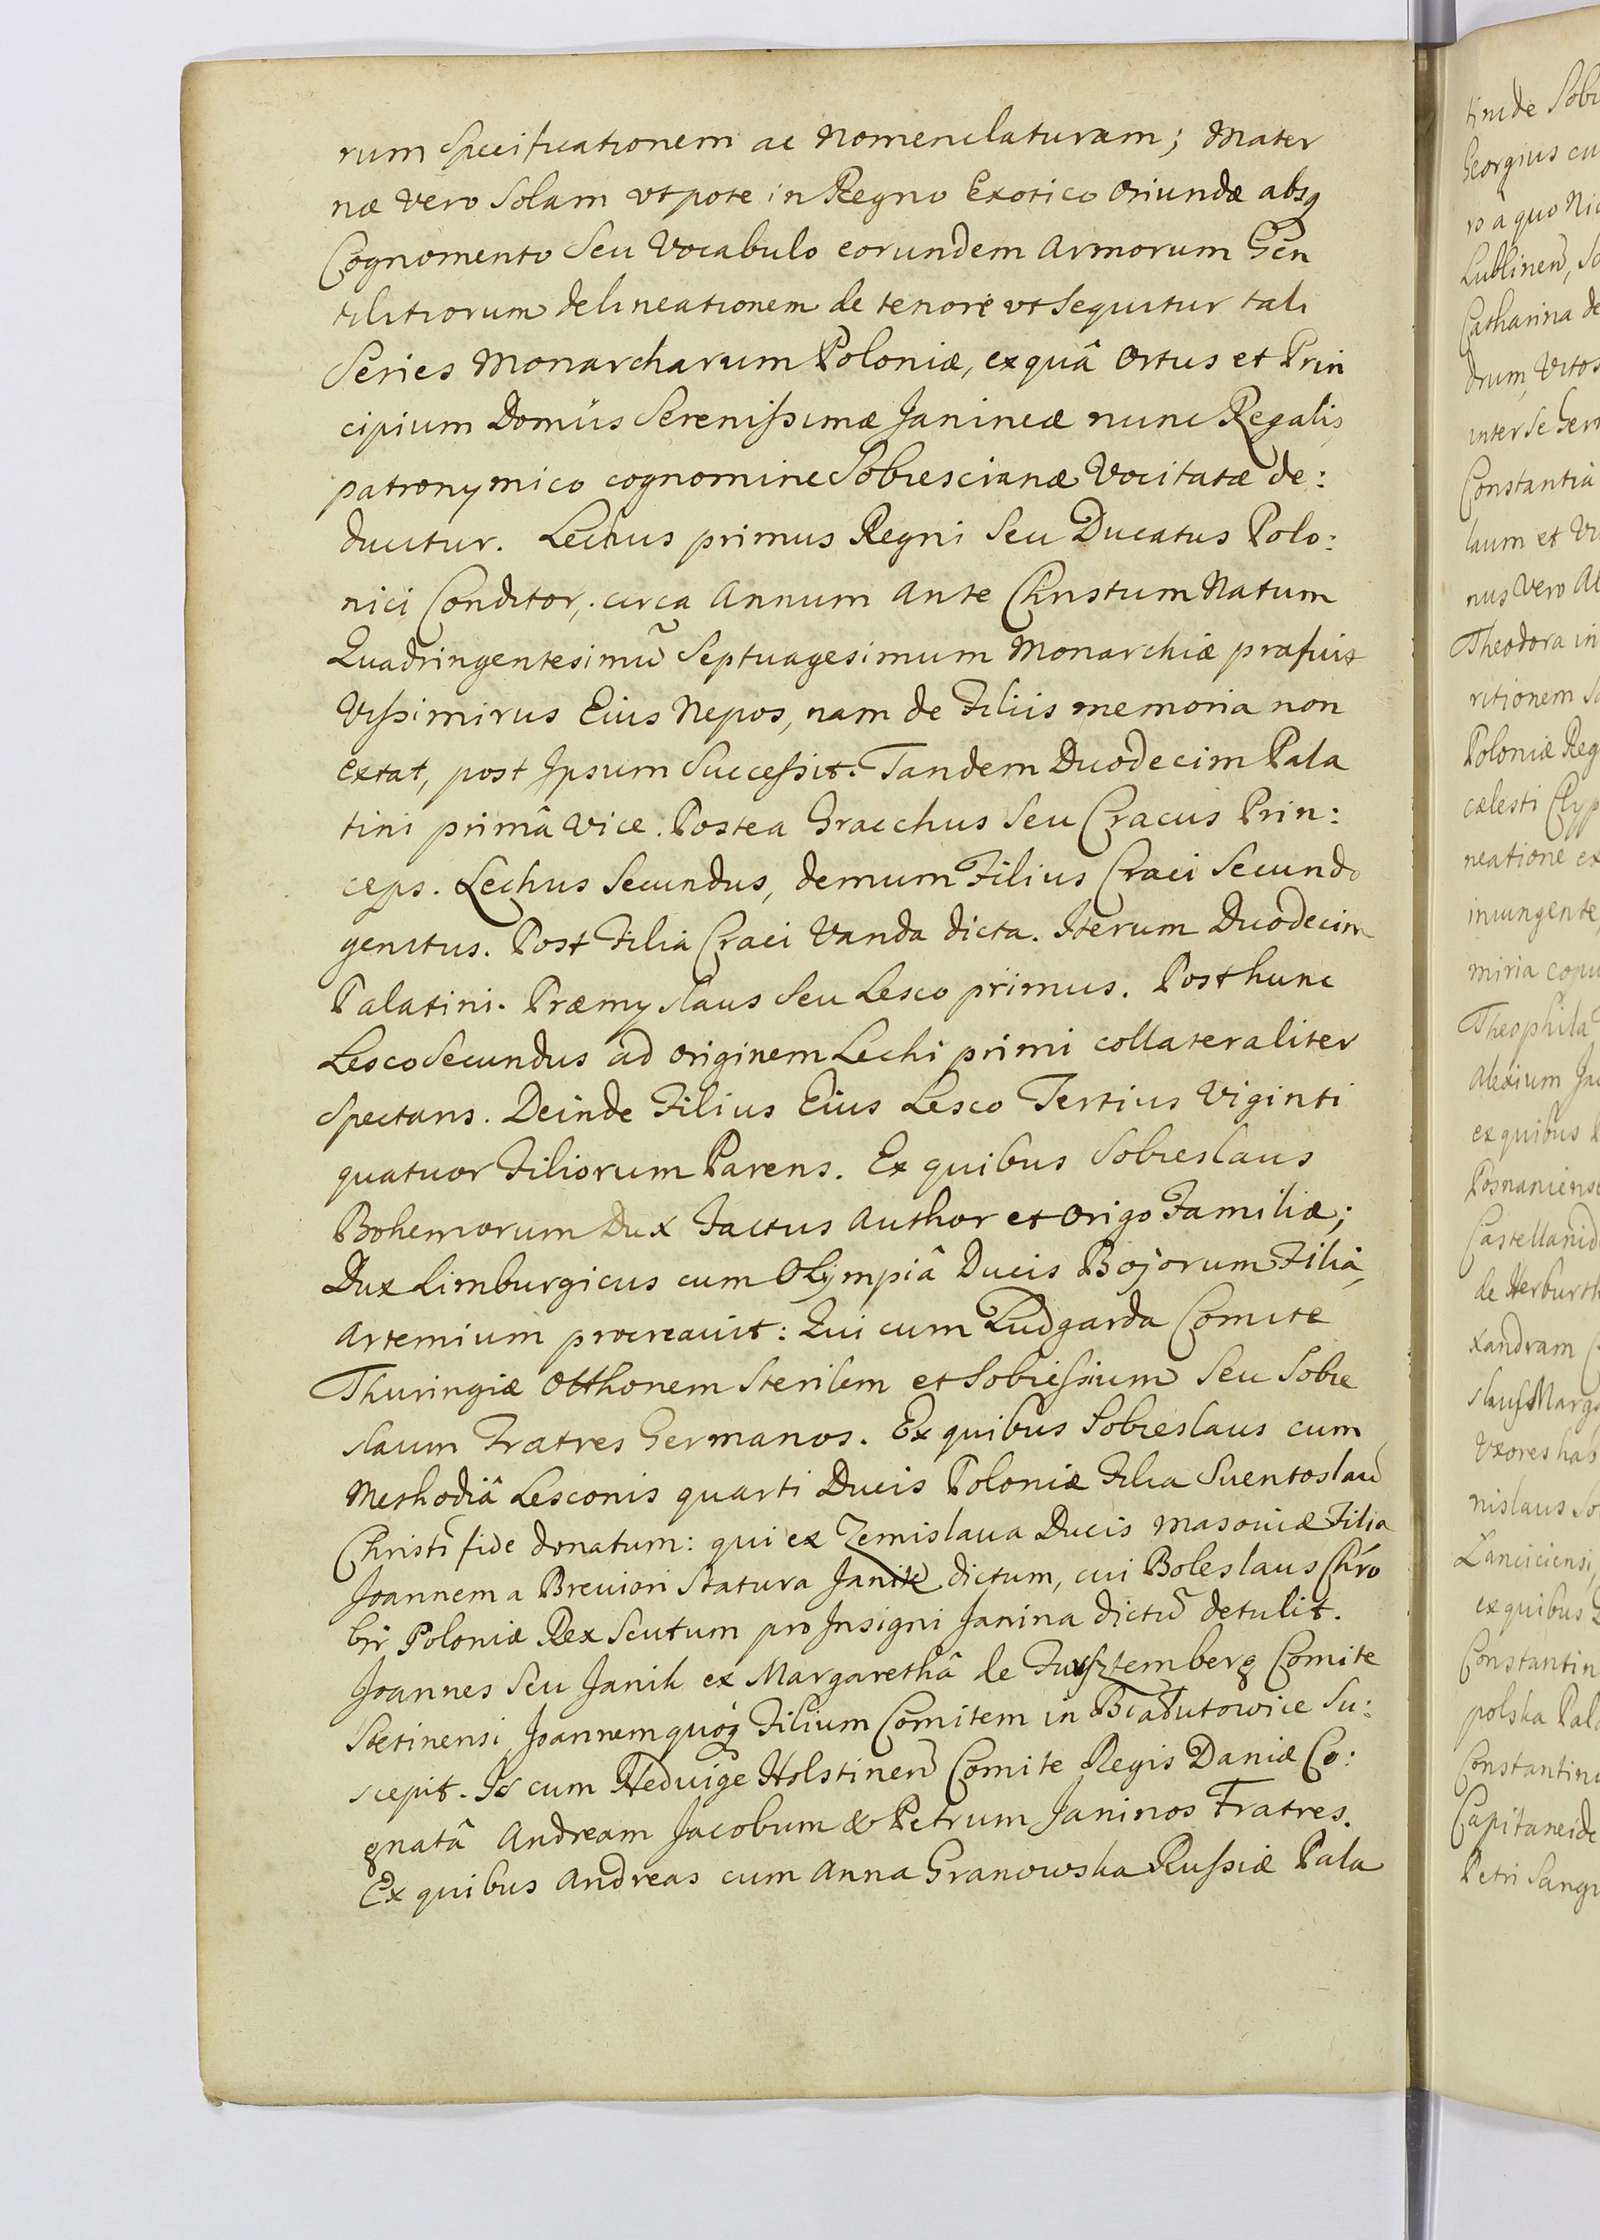 rum Specificationem ac Nomenclaturam; Mater
næ vero Solam vtpote in Regno Exotico Oriundæ absq
Cognomento Seu Vocabulo eorundem Armorum Gen
tilitiorum delineationem de tenore vt Sequitur tali
Series Monarcharum Poloniæ, ex quâ Ortus et Prin
cipium Domûs Serenissimæ Janineæ nunc Regalis
patronymico cognomine Sobiescianæ Vocitatæ de:
ducitur. Lechus primus Regni Seu Ducatus Polo:
nici Conditor, circa Annum Ante Christum Natum
Quadringentesimũ Septuagesimum Monarchiæ præfuit
Vissimirus Eius Nepos, nam de Filiis memoria non
extat, post Ipsum Successit. Tandem Duodecim Pala
tini primâ Vice. Postea Gracchus Seu Cracus Prin:
ceps. Lechus Secundus, demum Filius Craci Secundo
genitus. Post Filia Craci Vanda dicta. Iterum Duodecim
Palatini. Præmyslaus Seu Lesco primus. Post hunc
Lesco Secundus ad Originem Lechi primi collateraliter
Spectans. Deinde Filius Eius Lesco Tertius Viginti
quatuor Filiorum Parens. Ex quibus Sobieslaus
Bohemorum Dux Factus Author et Origo Familiæ;
Dux Limburgicus cum Olympiâ Ducis Bojorum Filia,
Artemium procreauit: Qui cum Ludgarda Comite
Thuringiæ Otthonem Sterilem et Sobiessium Seu Sobie
slaum Fratres Germanos. Ex quibus Sobieslaus cum
Methodiâ Lesconis quarti Ducis Poloniæ Filia Suentoslaũ
Christi fide donatum: qui ex Zemislaua Ducis Masoviæ Filia
Joannem a Breuiori Statura Janik dictum, cui Boleslaus Chro
bri Poloniæ Rex Scutum pro Insigni Janina dictũ detulit.
Joannes Seu Janik ex Margarethâ de Comite
Stetinensi Joannem quoq Filium Comitem in Biadutowice Su:
scepit. Is cum Hedvige Holstinen Comite Regis Daniæ Co:
gnatâ Andream Jacobum & Petrum Janinos Fratres.
Ex quibus Andreas cum Anna Granowska Russiæ Pala
tinide
Georgius
ro â quo
Lublinen,
Catharina de
drum,
inter Se
Constantia
laum et
nus vero
Theodora in
ritionem
Poloniæ
cælesti
neatione
iniungente
miria
Theophila
Alexium
ex quibus
Castellanid
de Herburth
xandram
Vxores
nislaus
ex quibus
Constantin
polska
Constantin
Capitaneide
Petri